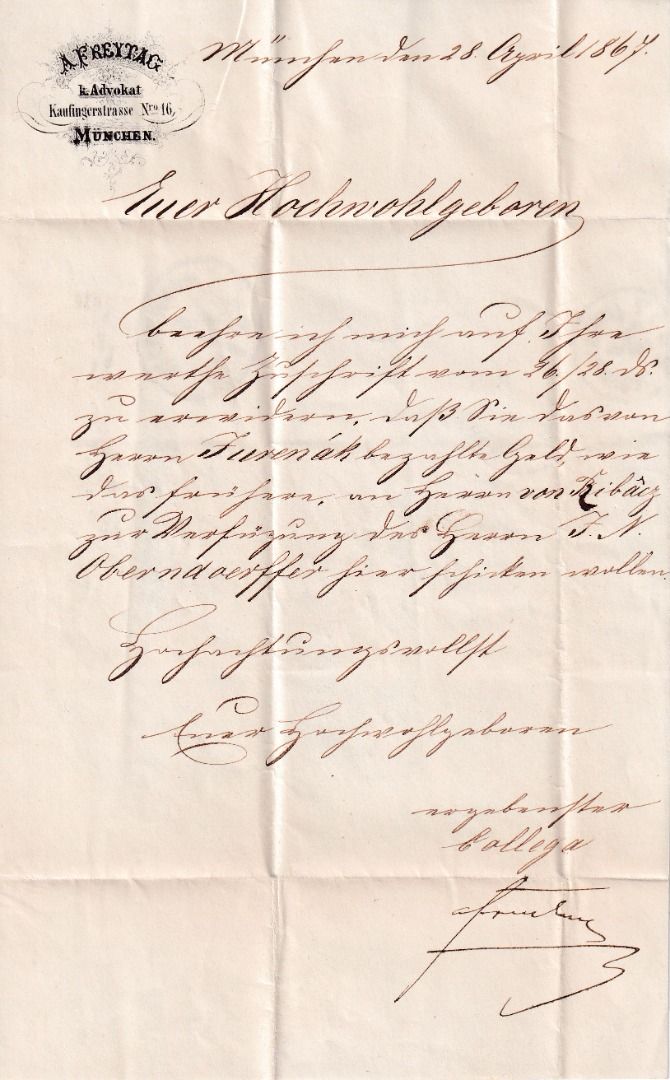 A. FREYTAG
k. Advokat
Kaufingerstrasse Nro 16,
MÜNCHEN.
München den 28. April 1867.
Euer Hochwohlgeboren
beehre ich mich auf Ihre
werthe Zuschrift vom 26./28. ds.
zu erwidern, daß Sie das von
Herrn Jurenák bezahlte Geld, wie
das frühere, an Herrn von Ribácz
zur Verfügung des Herrn J. N.
Oberndoerffer hier schicken wollen
Hochachtungsvollst
Euer Hochwohlgeboren
ergebenster
Collega
AFreytag